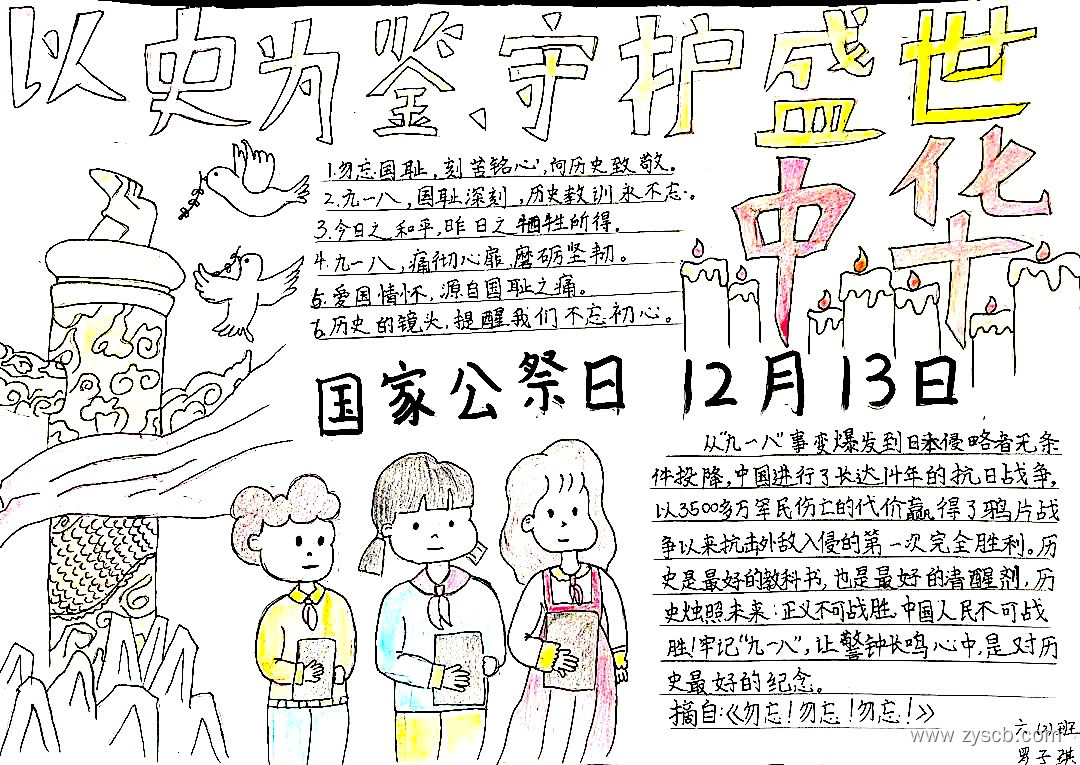 以史为鉴、守护盛世
中华
1.勿忘国耻，刻苦铭心，向历史致敬。
2.九一八，国耻深刻，历史教训永不忘。
3.今日之和平，昨日之牺牲所得。
4.九一八，痛彻心扉，磨砺坚韧。
5.爱国情怀，源自国耻之痛。
6.历史的镜头，提醒我们不忘初心。
国家公祭日 12月13日
从“九一八”事变爆发到日本侵略者无条
件投降，中国进行了长达14年的抗日战争，
以3500多万军民伤亡的代价赢得了鸦片战
争以来抗击外敌入侵的第一次完全胜利。历
史是最好的教科书，也是最好的清醒剂，历
史烛照未来：正义不可战胜，中国人民不可战
胜！牢记“九一八”，让警钟长鸣心中，是对历
史最好的纪念。
摘自：《勿忘！勿忘！勿忘！》
六(2)班
www.zyscb.com